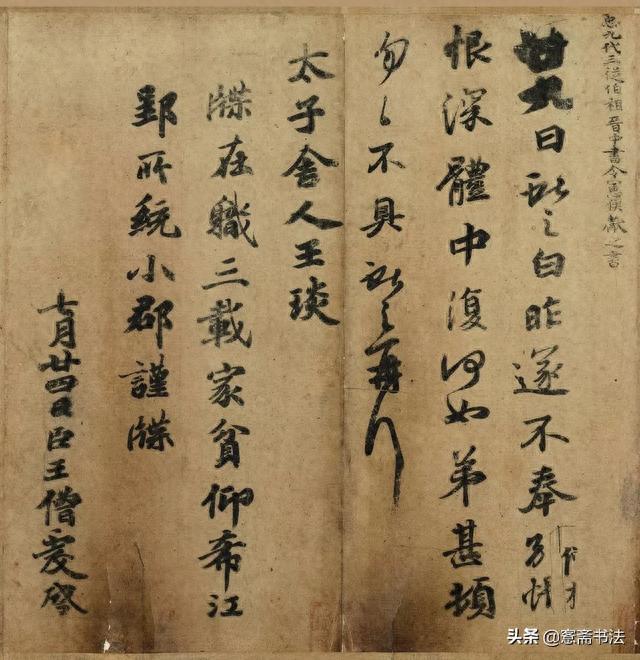 𢘑九代三從伯祖晉中書令憲侯獻之書
廿九日獻之白昨遂不奉別悵
恨深體中復何如弟甚頓
勿々不具獻之再拜
太子舍人王琰
牒在職三載家貧仰希江
郢所統小郡謹牒
七月廿四日臣王僧虔啓
头条@窓斋书法